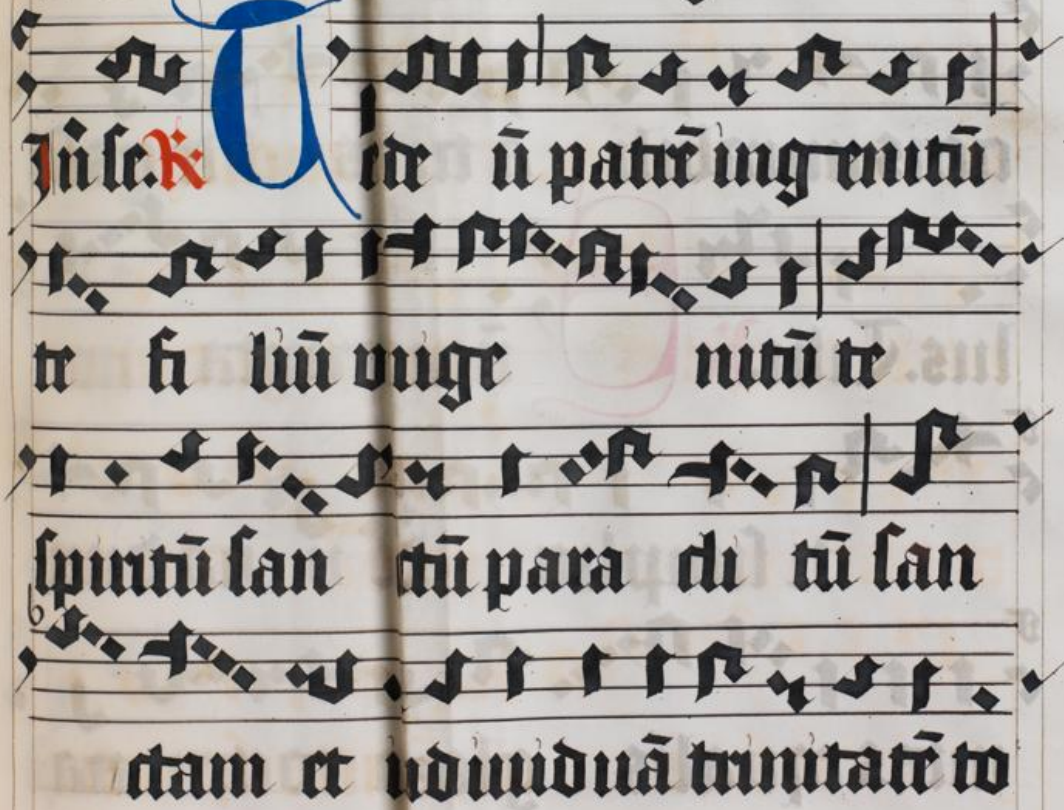 Jn̄ ſe. ℟ Tede ū patrē ingenitū
te fi liū unige nitū te
ſpiritū ſan ctū para cli tū ſan
ctam et ndiuiduā trinitatē to